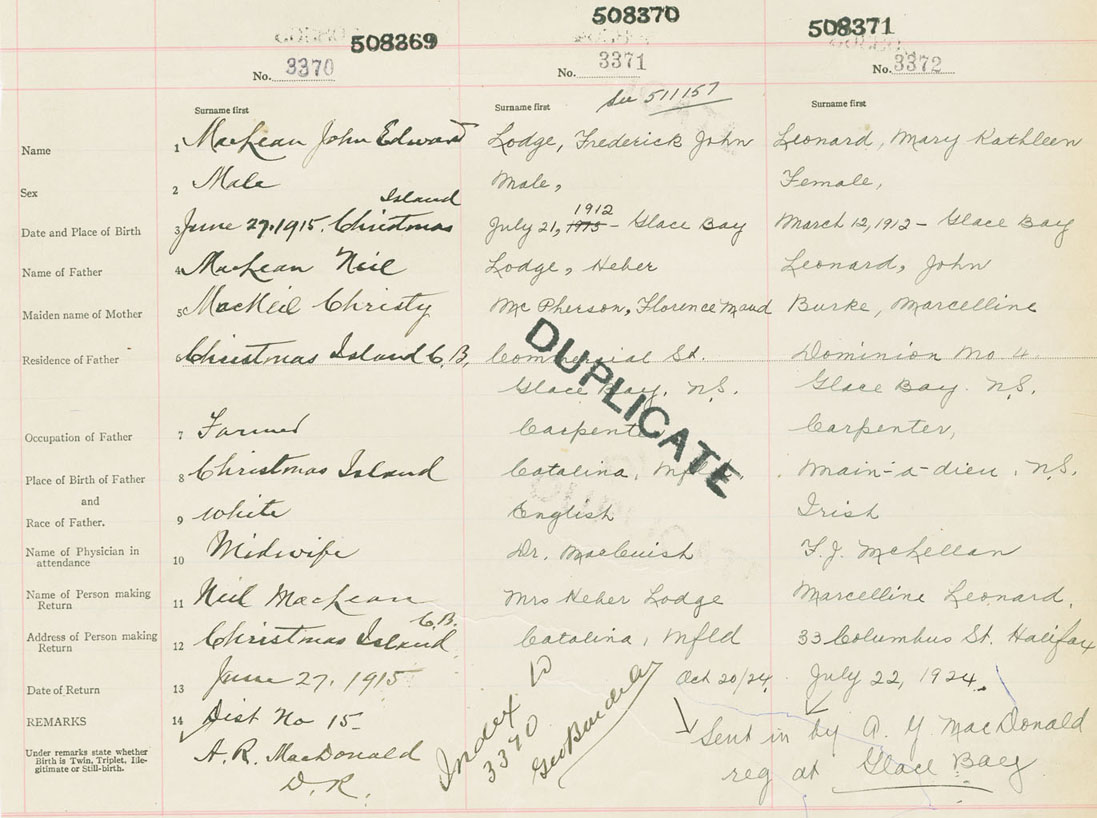 508369 508370 508371
No. 3370 No. 3371 No. 3372
See 511157
Surname first Surname first Surname first
Name 1 MacLean John Edward Lodge, Frederick John Leonard, Mary Kathleen
Sex 2 Male Male, Female,
Island
1912
Date and Place of Birth 3 June 27, 1915. Christmas July 21, 1915 - Glace Bay March 12, 1912 - Glace Bay
Name of Father 4 MacLean Neil Lodge, Heber Leonard, John
Maiden name of Mother 5 MacNeil Christy McPherson, Florence Maud Burke, Marcelline
Residence of Father Christmas Island C.B. Commercial St. Dominion No 4.
Glace Bay, N.S. Glace Bay. N.S.
DUPLICATE
Occupation of Father 7 Farmer Carpenter Carpenter,
Place of Birth of Father 8 Christmas Island Catalina, Nfld. Main-a-dieu, N.S.
and
Race of Father. 9 White English Irish
Name of Physician in attendance 10 Midwife Dr. MacCuish F. J. McLellan
Name of Person making Return 11 Neil MacLean Mrs Heber Lodge Marcelline Leonard,
C.B.
Address of Person making Return 12 Christmas Island Catalina, Nfld 33 Columbus St. Halifax
Date of Return 13 June 27, 1915 Oct 20/24. July 22, 1924.
REMARKS 14 Dist No 15
Under remarks state whether Birth is Twin, Triplet, Illegitimate or Still-birth.
A. R. MacDonald
D. R.
Index to
3370
Sent in by A. Y MacDonald
reg at Glace Bay